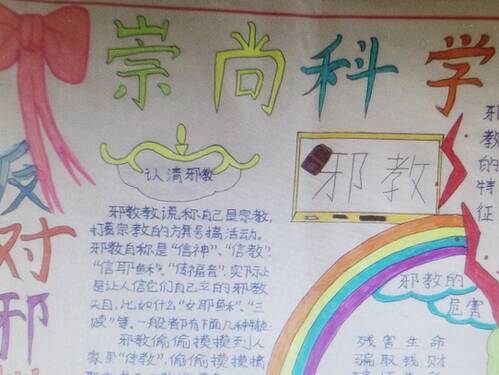 崇尚科学
反对邪
认清邪教
邪教教谎称自己是宗教,
打着宗教的方舞号搞活动。
邪教自称是“信神”、“信教”、
“信耶稣”、“传福音”,实际上
是让人信它们自己立的邪教
头目,比如什么“女耶稣”、“三
赎”等。一般都有下面几种特征:
邪教偷偷摸摸到人
家里“传教”,偷偷摸摸搞
邪教
邪
教
的
特
征
邪教的
危害
残害生命
骗取钱财